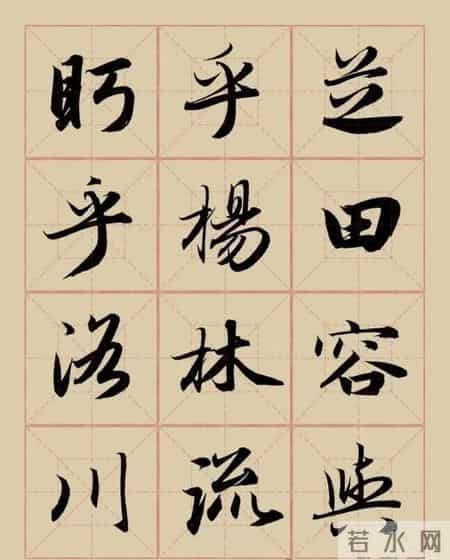 芝田容與
乎楊林流
眄乎洛川
若水网